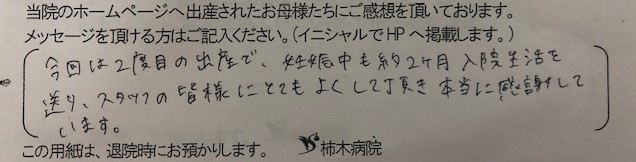 当院のホームページへ出産されたお母様たちにご感想を頂いております。
メッセージを頂ける方はご記入ください。(イニシャルでHPへ掲載します。)
今回は2度目の出産で、妊娠中も約2ヶ月入院生活を
送り、スタッフの皆様にとてもよくして頂き本当に感謝して
います。
この用紙は、退院時にお預かりします。 柿木病院